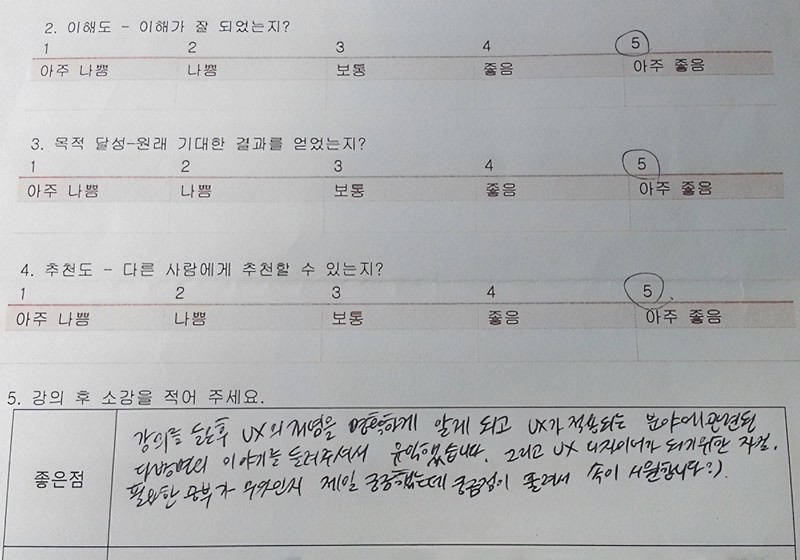 2. 이해도 - 이해가 잘 되었는지?
1 2 3 4 5
아주 나쁨 나쁨 보통 좋음 아주 좋음
3. 목적 달성-원래 기대한 결과를 얻었는지?
1 2 3 4 5
아주 나쁨 나쁨 보통 좋음 아주 좋음
4. 추천도 - 다른 사람에게 추천할 수 있는지?
1 2 3 4 5
아주 나쁨 나쁨 보통 좋음 아주 좋음
5. 강의 후 소감을 적어 주세요.
좋은점
강의를 들은후 UX의 개념을 명확하게 알게 되고 UX가 적용되는 분야에 관련된
다방면의 이야기를 들려주셔서 유익했습니다. 그리고 UX 디자이너가 되기위한 자질,
필요한 공부가 무엇인지 제일 궁금했는데 궁금점이 풀려서 속이 시원합니다?).